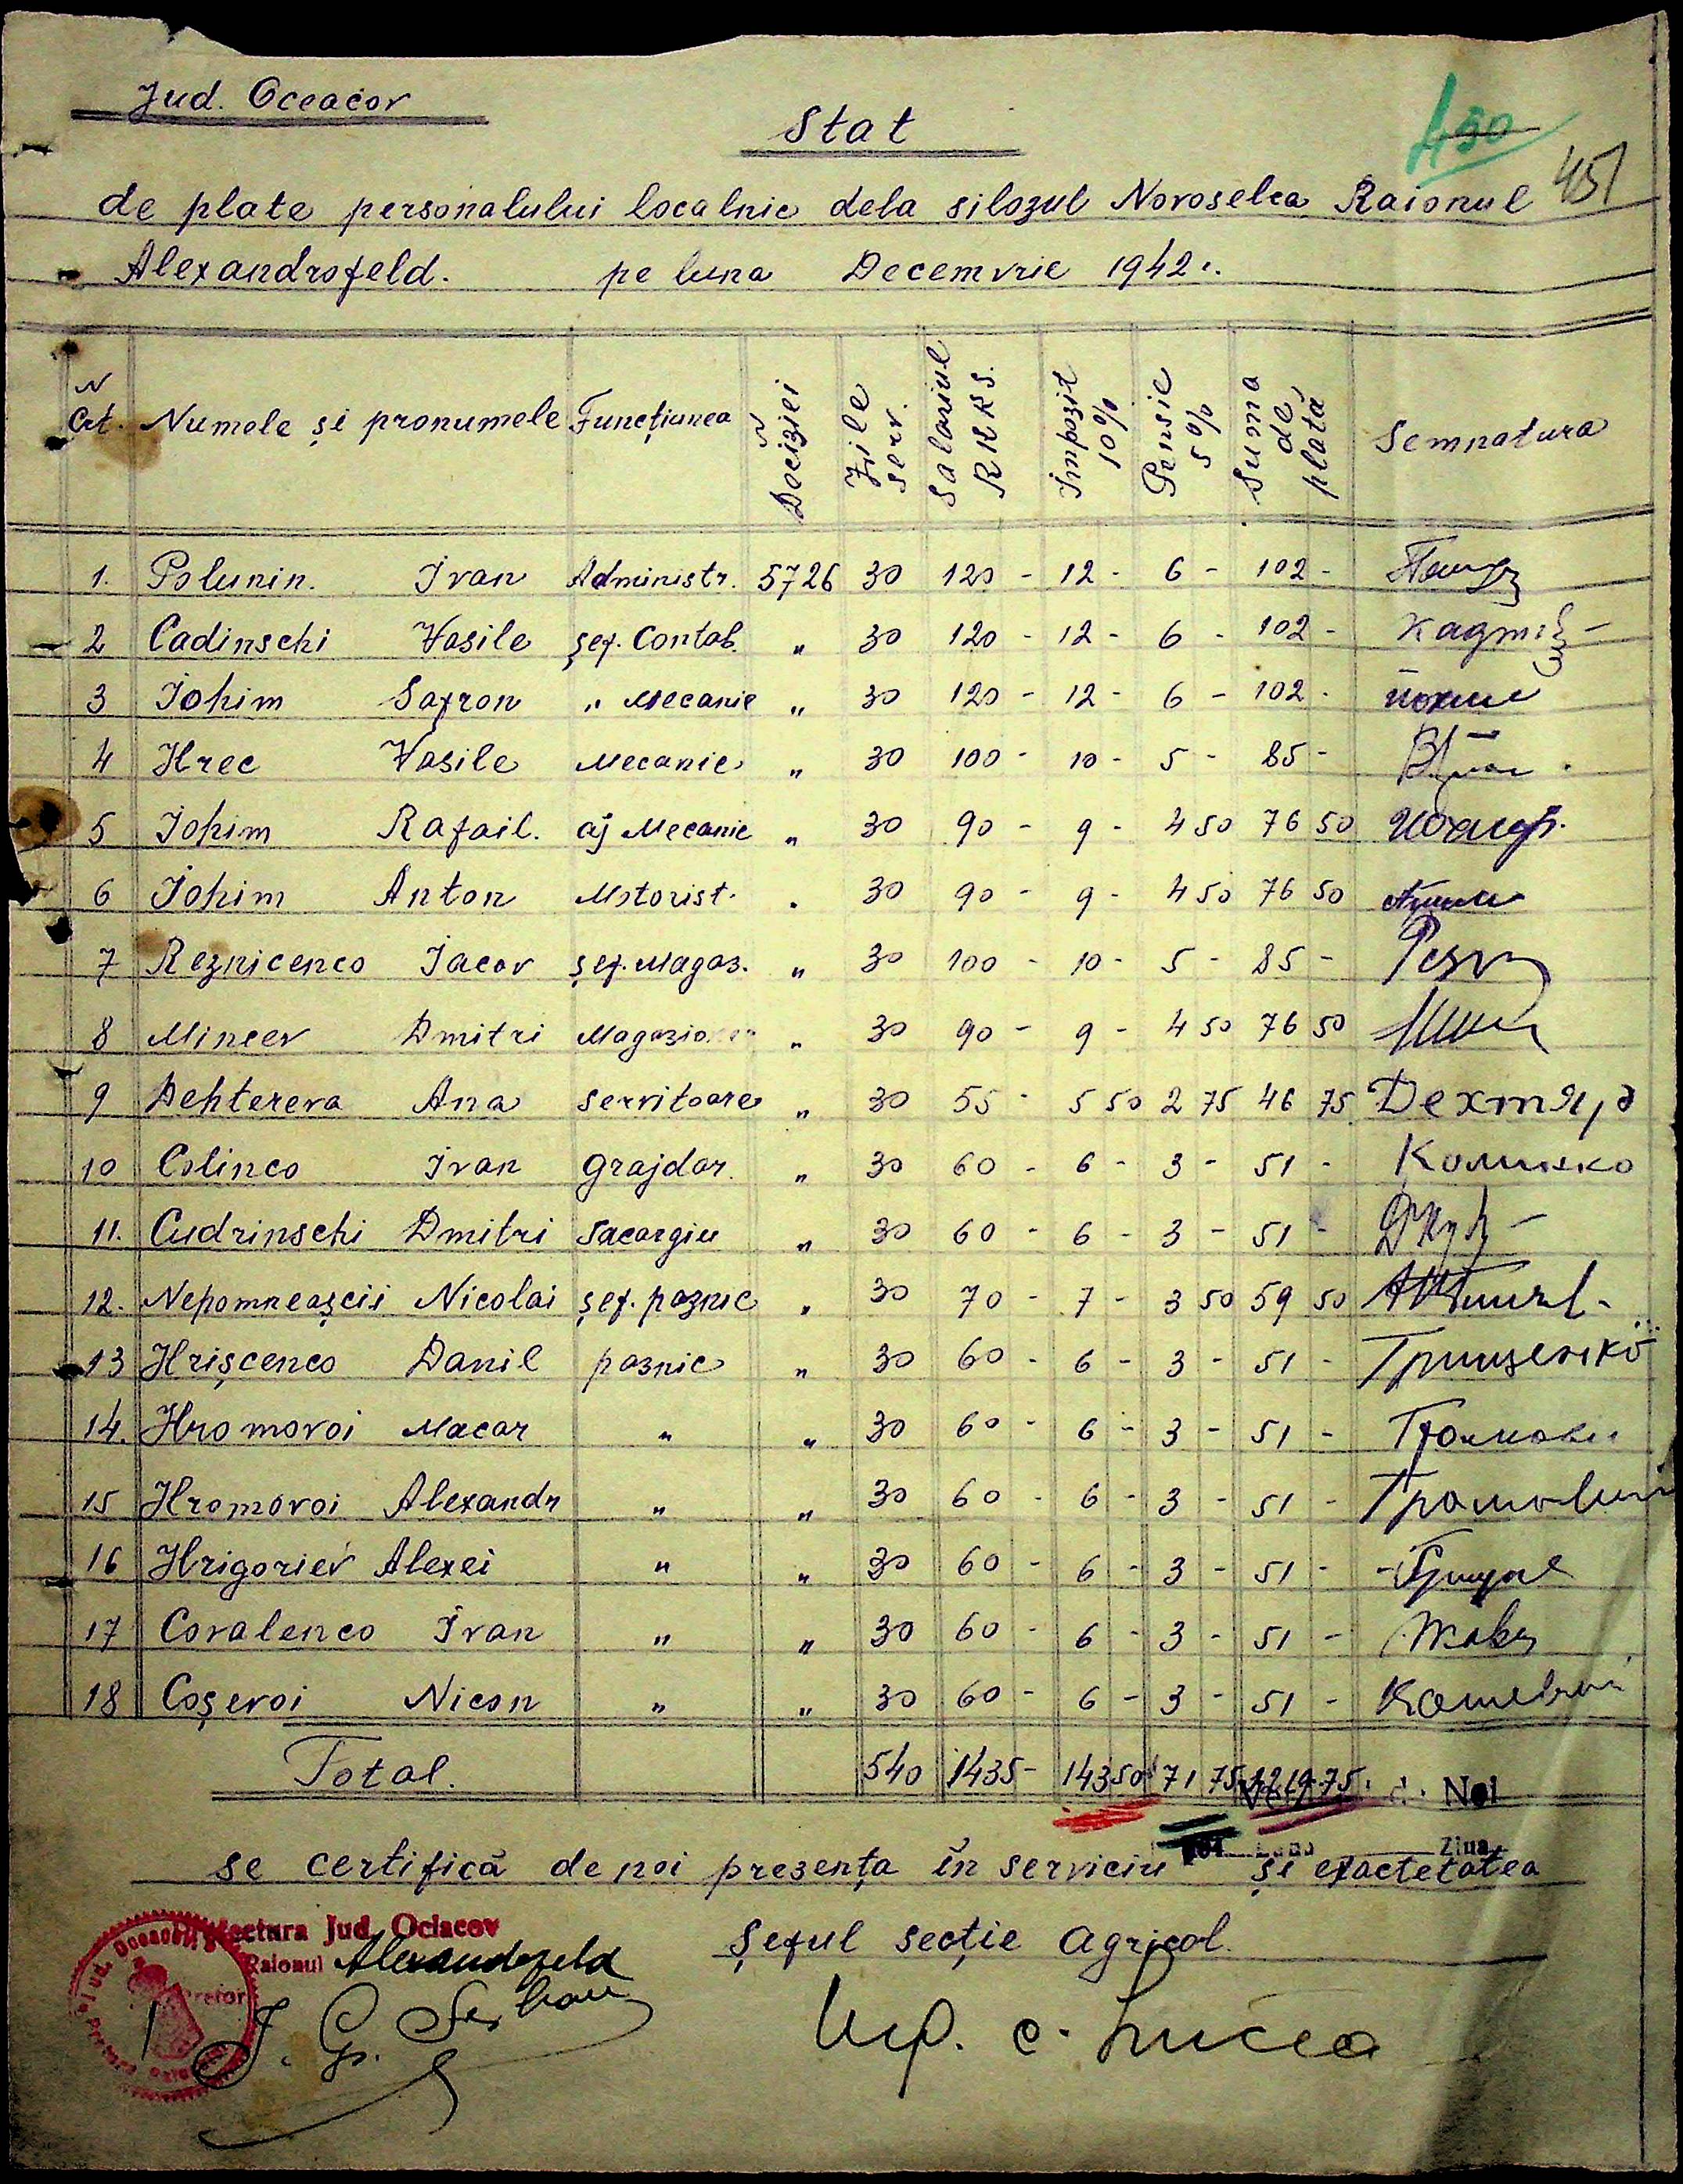 Jud. Oceacov
Stat
450
451
de plate personalului localnic dela silozul Novoselca Raionul
Alexandrofeld. pe luna Decemvrie 1942.
N Crt. Numele și pronumele Funcțiunea N Deciziei Zile serv. Salariul RKKS. Impozit 10% Pensie 5% Suma de plată Semnatura
1. Polunin. Ivan Administr. 5726 30 120 - 12 - 6 - 102 -
2 Cadinschi Vasile șef. Contab. „ 30 120 - 12 - 6 - 102 -
3 Iohim Safron „ Mecanic „ 30 120 - 12 - 6 - 102 - йохим
4 Hrec Vasile Mecanic „ 30 100 - 10 - 5 - 85 -
5 Iohim Rafail. aj Mecanic „ 30 90 - 9 - 4 50 76 50
6 Iohim Anton Motorist. „ 30 90 - 9 - 4 50 76 50
7 Reznicenco Iacov șef. Magaz. „ 30 100 - 10 - 5 - 85 -
8 Mincev Dmitri Magazio „ 30 90 - 9 - 4 50 76 50
9 Dehtereva Ana servitoare „ 30 55 - 5 50 2 75 46 75 Дехтяр
10 Colinco Ivan grajdar. „ 30 60 - 6 - 3 - 51 - Колинко
11. Cudrinschi Dmitri Sacargiu „ 30 60 - 6 - 3 - 51 -
12. Nepomneașcii Nicolai șef. paznic „ 30 70 - 7 - 3 50 59 50
13 Hrișcenco Danil paznic „ 30 60 - 6 - 3 - 51 - Грищенко
14. Hromovoi Macar „ „ 30 60 - 6 - 3 - 51 -
15 Hromovoi Alexandr „ „ 30 60 - 6 - 3 - 51 - Громовий
16 Hrigoriev Alexei „ „ 30 60 - 6 - 3 - 51 -
17 Covalenco Ivan „ „ 30 60 - 6 - 3 - 51 -
18 Coșevoi Nicon „ „ 30 60 - 6 - 3 - 51 - Кошевой
Total. 540 1435 - 143 50 71 75 1219 75
Noi
Ziua
se certifică de noi prezența în serviciu și exactetatea
Prefectura Jud. Ociacov
Raionul Alexandrofeld
Pretor
Șeful secție Agricol.